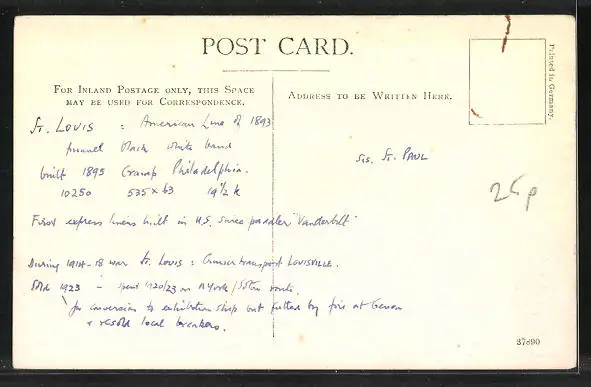 POST CARD.
FOR INLAND POSTAGE ONLY, THIS SPACE
MAY BE USED FOR CORRESPONDENCE.
ADDRESS TO BE WRITTEN HERE.
Printed in Germany.
ST. LOUIS : American Line of 1893
funnel black white band
built 1895 Cramp Philadelphia.
10250 535 x 63 19 1/2 k
sis. ST. PAUL
25p
First express liners built in U.S. since paddler "Vanderbilt"
During 1914-18 war St. Louis : Cruiser transport LOUISVILLE.
Sold 1923 - spent 1920/23 on N York / Soton route.
for conversion to exhibition ship but gutted by fire at Genoa
+ resold local breakers.
37890